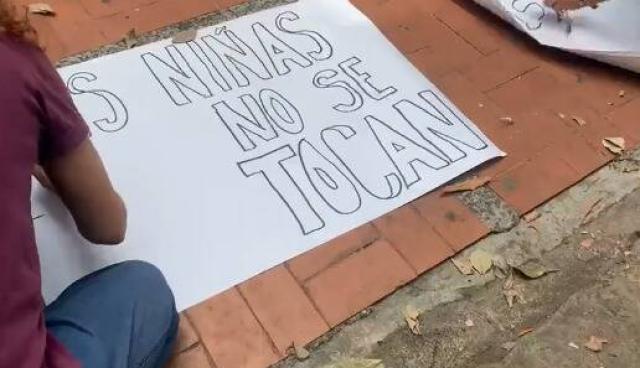 S NIÑAS
NO SE
TOCAN